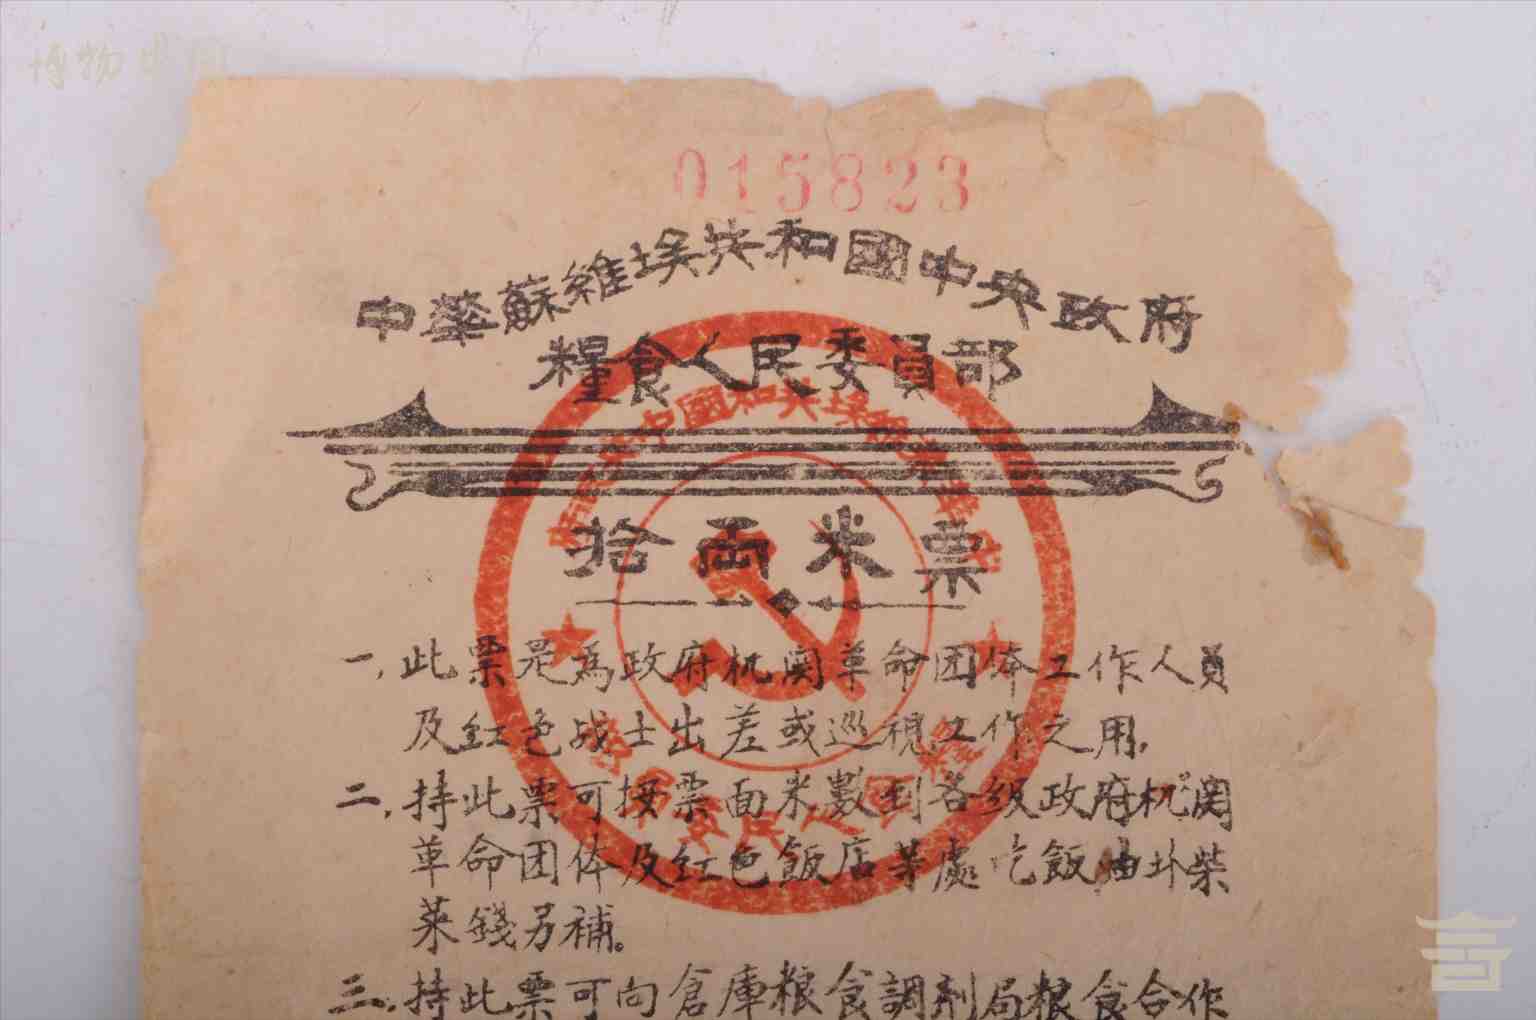 博物中国
015823
中華蘇維埃共和國中央政府
糧食人民委員部
拾兩米票
一，此票是為政府机関革命团体工作人員
及红色战士出差或巡視工作之用，
二，持此票可按票面米数到各级政府机関
革命团体及红色飯店等處吃飯油外柴
菜錢另補。
三，持此票可向倉庫粮食調剂局粮食合作